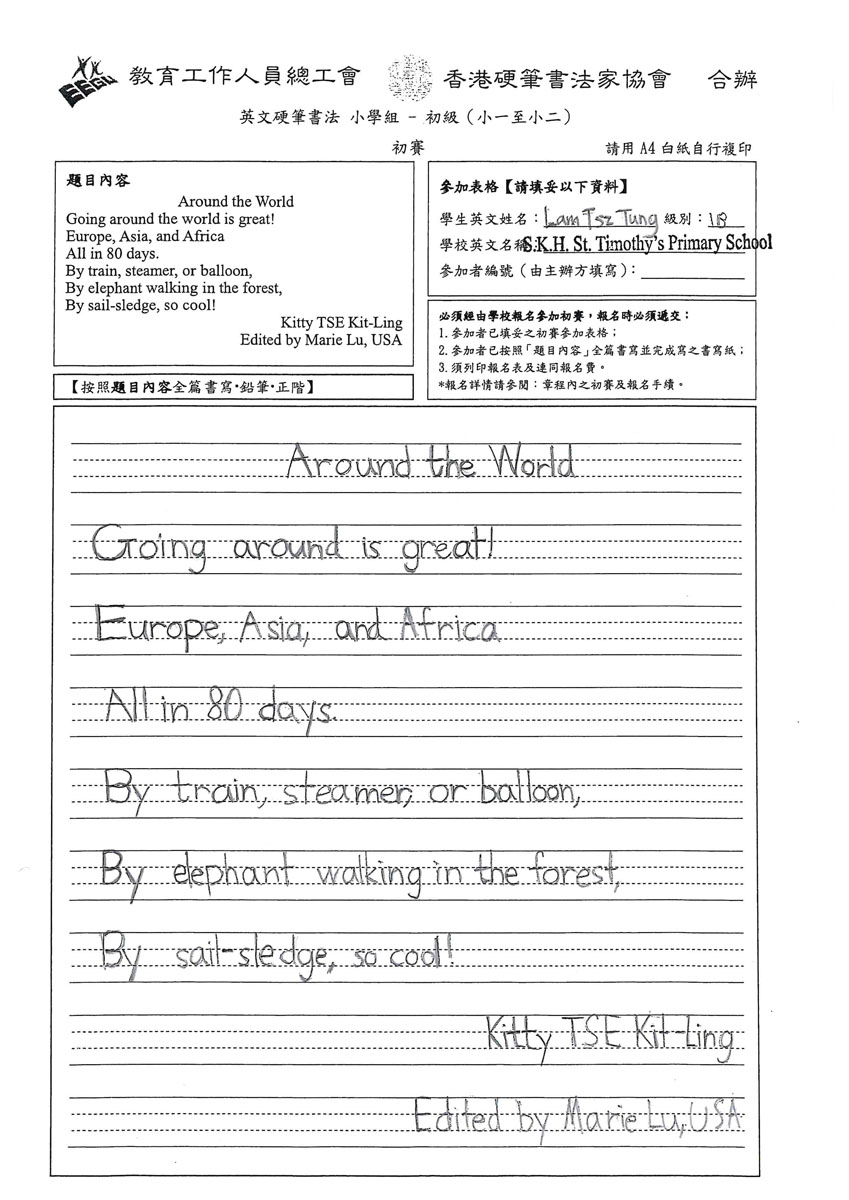 EEGU 教育工作人員總工會 香港硬筆書法家協會 合辦
英文硬筆書法 小學組 - 初級（小一至小二）
初賽 請用 A4 白紙自行複印
題目內容
Around the World
Going around the world is great!
Europe, Asia, and Africa
All in 80 days.
By train, steamer, or balloon,
By elephant walking in the forest,
By sail-sledge, so cool!
Kitty TSE Kit-Ling
Edited by Marie Lu, USA
【按照題目內容全篇書寫·鉛筆·正階】
參加表格【請填妥以下資料】
學生英文姓名：Lam Tsz Tung 級別：1B
學校英文名稱：S.K.H. St. Timothy's Primary School
參加者編號（由主辦方填寫）：
必須經由學校報名參加初賽，報名時必須遞交：
1. 參加者已填妥之初賽參加表格；
2. 參加者已按照「題目內容」全篇書寫並完成寫之書寫紙；
3. 須列印報名表及連同報名費。
*報名詳情請參閱：章程內之初賽及報名手續。
Around the World
Going around is great!
Europe, Asia, and Africa
All in 80 days.
By train, steamer, or balloon,
By elephant walking in the forest,
By sail-sledge, so cool!
Kitty TSE Kit-Ling
Edited by Marie Lu, USA